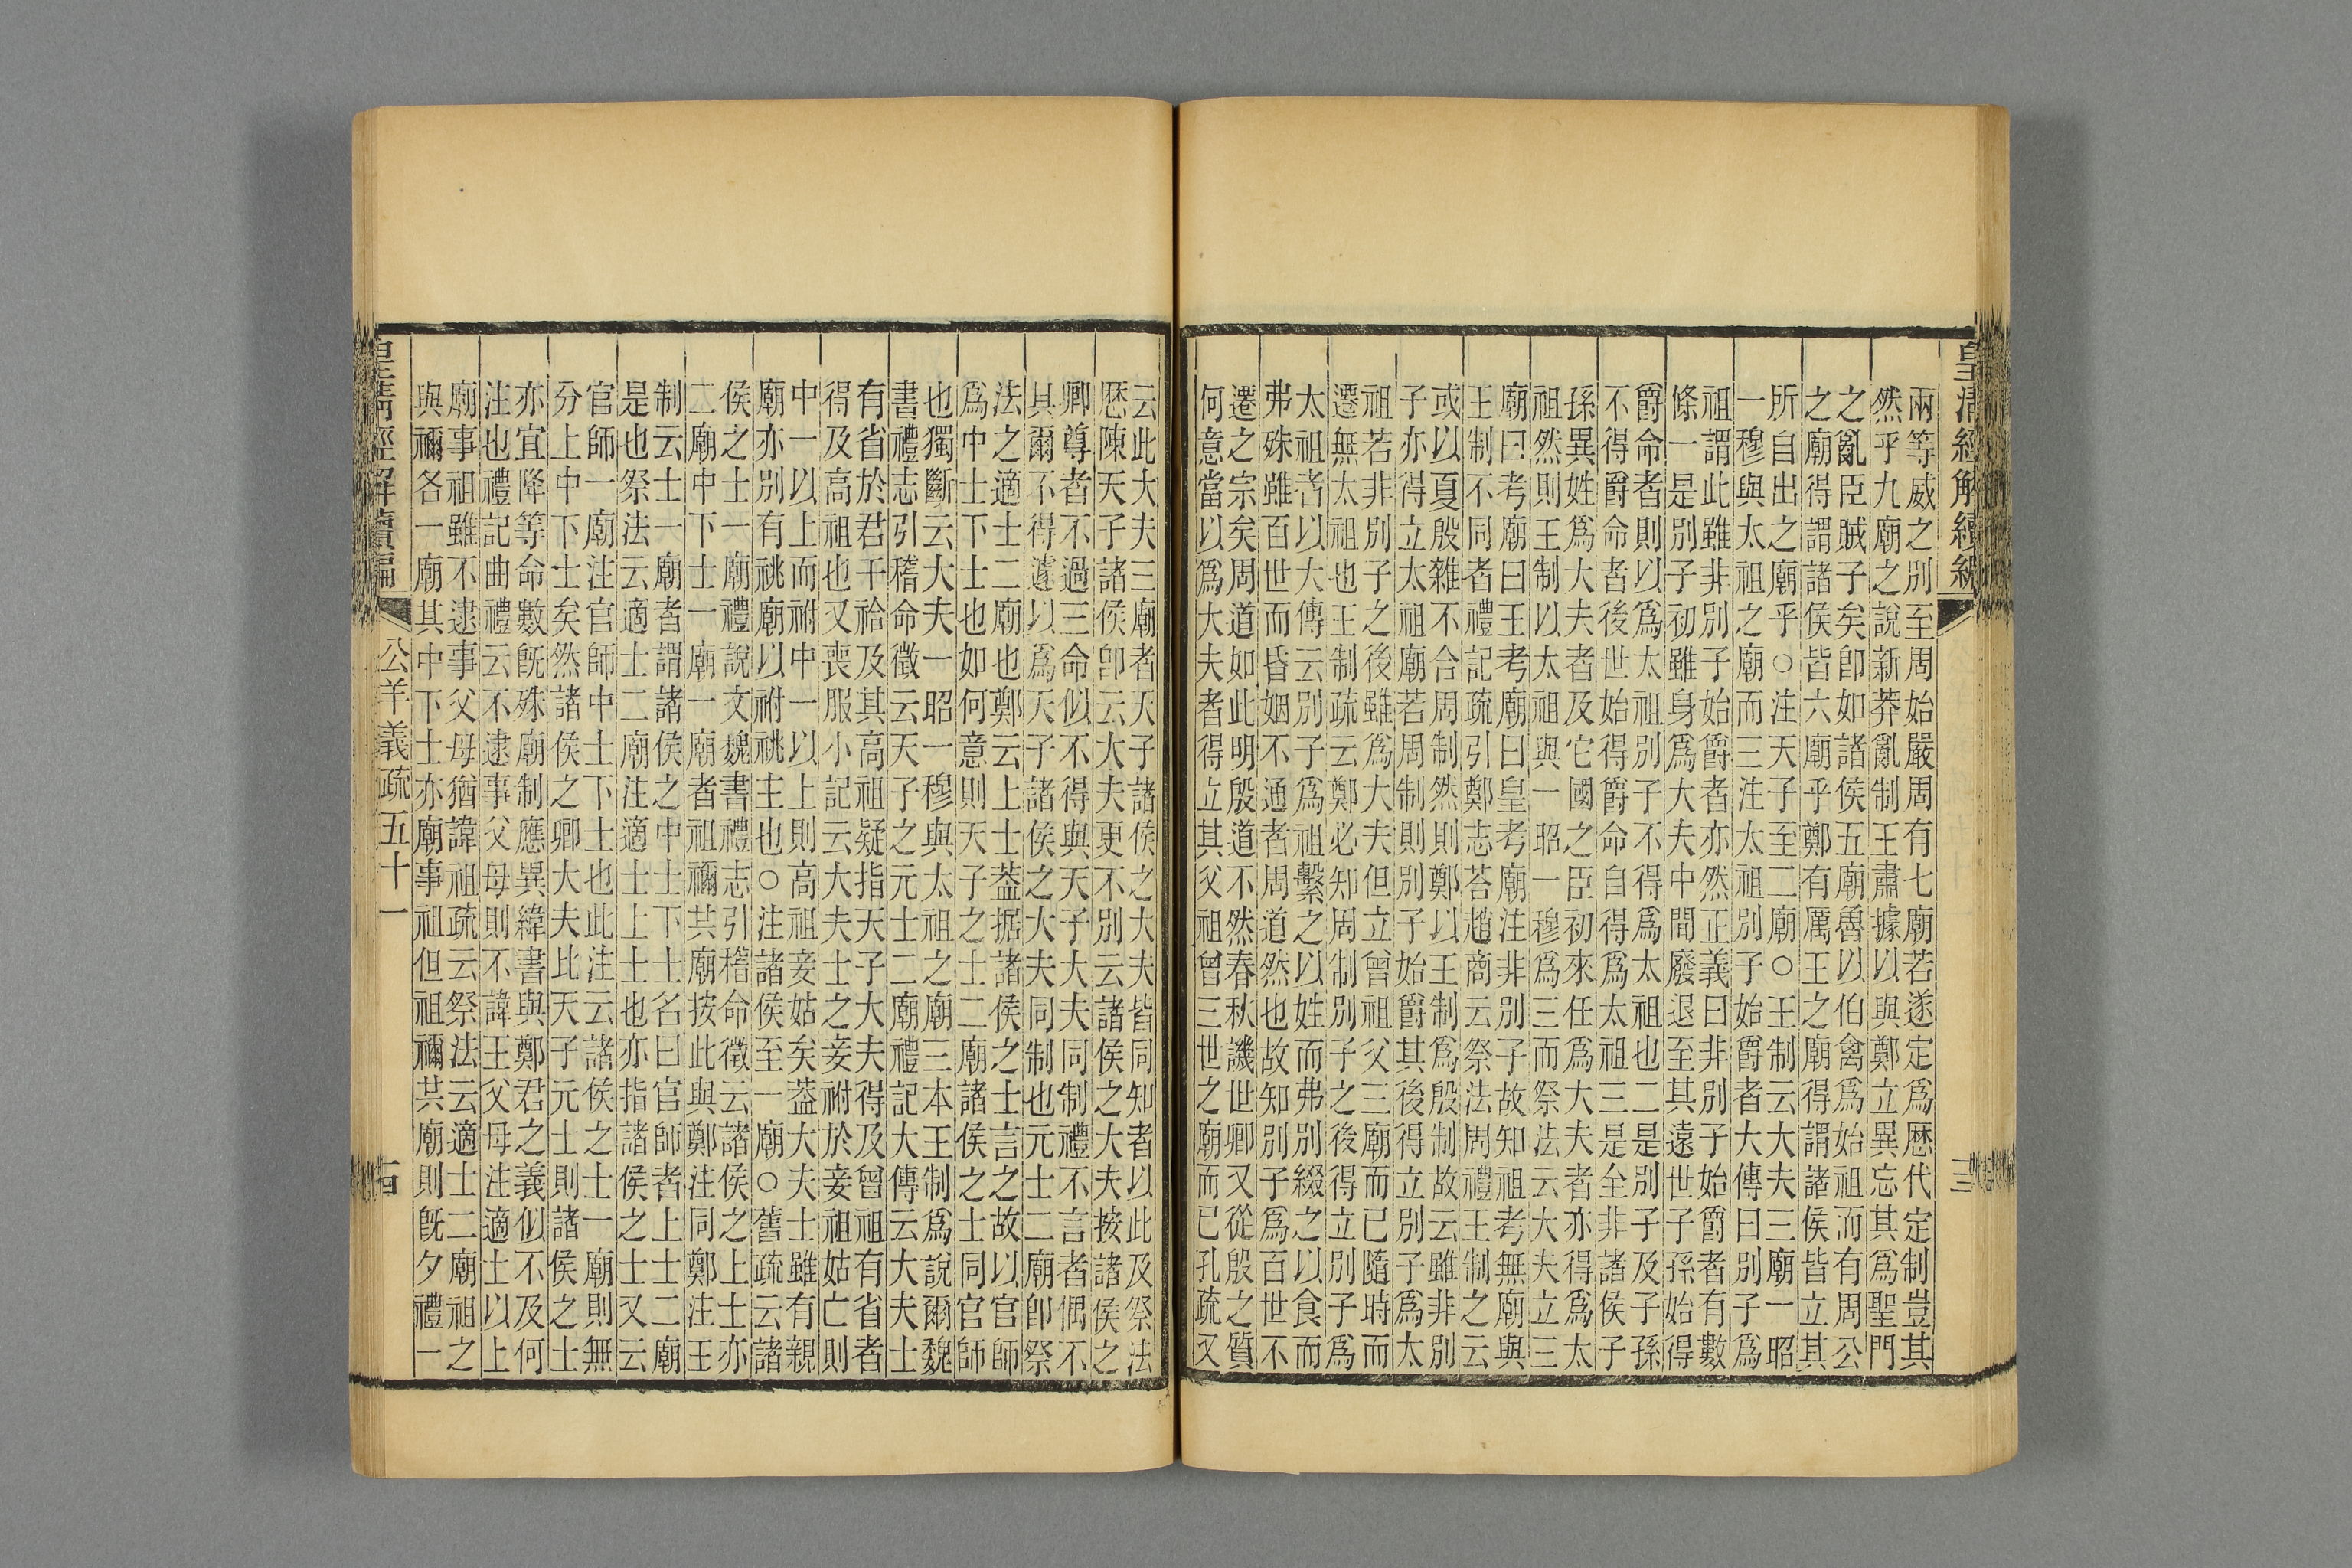 皇清經解續編
兩等威之別至周始嚴周有七廟若遂定爲歷代定制豈其
然乎九廟之說新莽亂制王肅據以與鄭立異忘其爲聖門
之亂臣賊子矣卽如諸侯五廟魯以伯禽爲始祖而有周公
之廟得謂諸侯皆六廟乎鄭有厲王之廟得謂諸侯皆立其
所自出之廟乎○注天子至二廟○王制云大夫三廟一昭
一穆與太祖之廟而三注太祖別子始爵者大傳曰別子爲
祖謂此雖非別子始爵者亦然正義曰非別子始爵者有數
條一是別子初雖身爲大夫中間廢退至其遠世子孫始得
爵命者則以爲太祖別子不得爲太祖也二是別子及子孫
不得爵命者後世始得爵命自得爲太祖三是全非諸侯子
孫異姓爲大夫者及它國之臣初來任爲大夫者亦得爲太
祖然則王制以太祖與一昭一穆爲三而祭法云大夫立三
廟曰考廟曰王考廟曰皇考廟注非別子故知祖考無廟與
王制不同者禮記疏引鄭志荅趙商云祭法周禮王制之云
或以夏殷雜不合周制然則鄭以王制爲殷制故云雖非別
子亦得立太祖廟若周制則別子始爵其後得立別子爲太
祖若非別子之後雖爲大夫但立曾祖父三廟而已隨時而
遷無太祖也王制疏云鄭必知周制別子之後得立別子爲
太祖者以大傳云別子爲祖繫之以姓而弗別綴之以食而
弗殊雖百世而昏姻不通者周道然也故知別子爲百世不
遷之宗矣周道如此明殷道不然春秋譏世卿又從殷之質
何意當以爲大夫者得立其父祖曾三世之廟而已孔疏又
云此大夫三廟者天子諸侯之大夫皆同知者以此及祭法
歷陳天子諸侯卽云大夫更不別云諸侯之大夫按諸侯之
卿尊者不過三命似不得與天子大夫同制禮不言者偶不
具爾不得遽以爲天子諸侯之大夫同制也元士二廟卽祭
法之適士二廟也鄭云上士葢据諸侯之士言之故以官師
爲中士下士也如何意則天子之士二廟諸侯之士同官師
也獨斷云大夫一昭一穆與太祖之廟三本王制爲說爾魏
書禮志引稽命徵云天子之元士二廟禮記大傳云大夫士
有省於君干祫及其高祖疑指天子大夫得及曾祖有省者
得及高祖也又喪服小記云大夫士之妾祔於妾祖姑亡則
中一以上而祔中一以上則高祖妾姑矣葢大夫士雖有親
廟亦別有祧廟以祔祧主也○注諸侯至一廟○舊疏云諸
侯之士一廟禮說文魏書禮志引稽命徵云諸侯之上士亦
二廟中下士一廟一廟者祖禰共廟按此與鄭注同鄭注王
制云士一廟者謂諸侯之中士下士名曰官師者上士二廟
是也祭法云適士二廟注適士上士也亦指諸侯之士又云
官師一廟注官師中士下士也此注云諸侯之士一廟則無
分上中下士矣然諸侯之卿大夫比天子元士則諸侯之士
亦宜降等命數旣殊廟制應異緯書與鄭君之義似不及何
注也禮記曲禮云不逮事父母則不諱王父母注適士以上
廟事祖雖不逮事父母猶諱祖疏云祭法云適士二廟祖之
與禰各一廟其中下士亦廟事祖但祖禰共廟則旣夕禮一
皇清經解續編 公羊義疏五十一